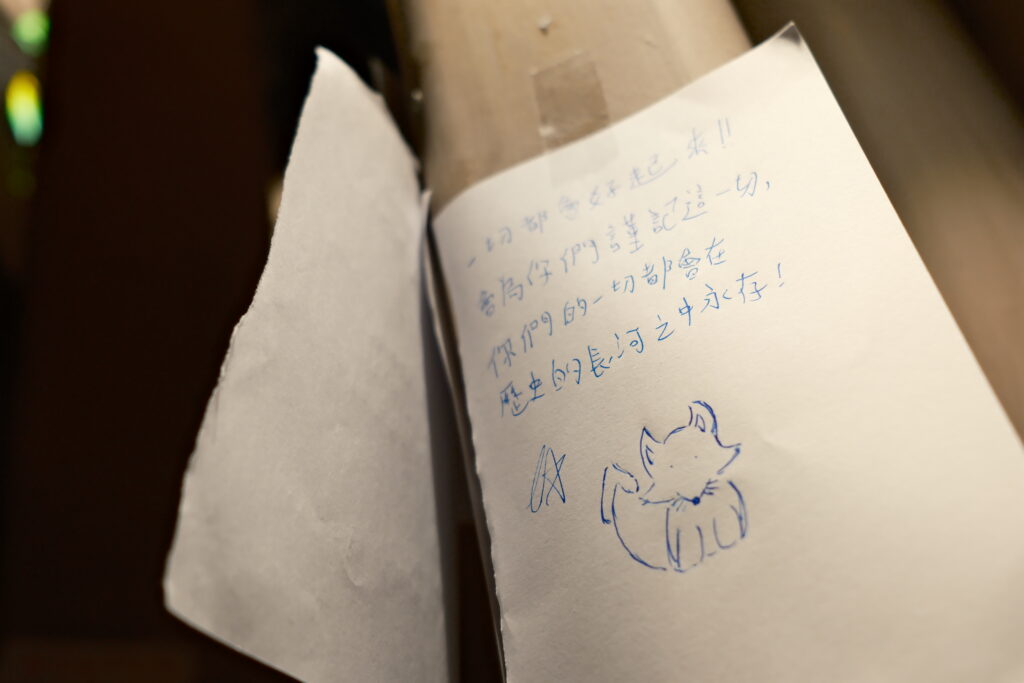 一切都會好起來!!
會為你們謹記這一切,
你們的一切都會在
歷史的長河之中永存!